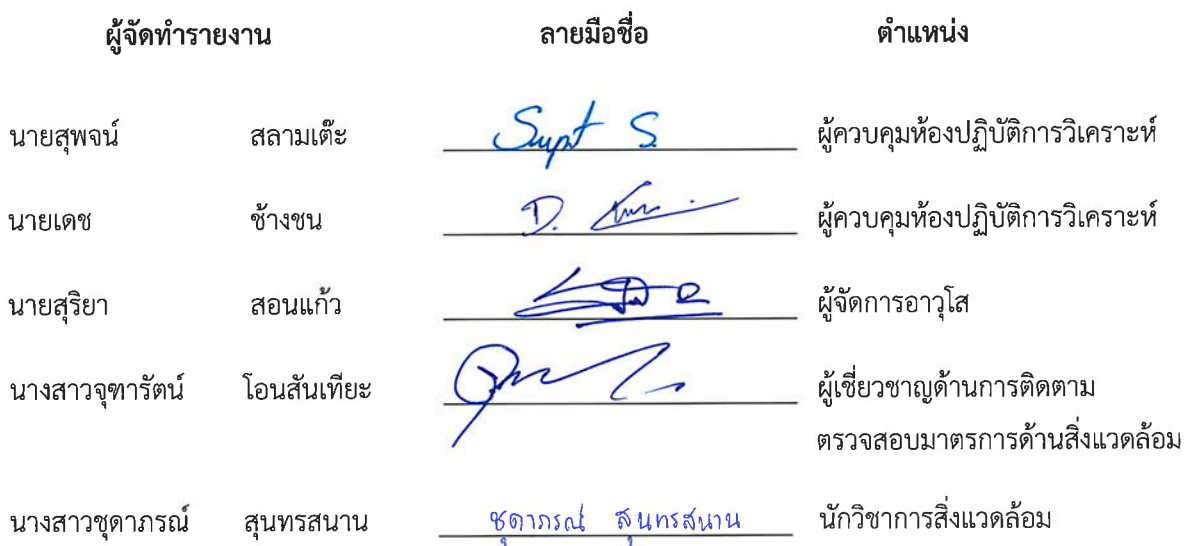 ผู้จัดทำรายงาน ลายมือชื่อ ตำแหน่ง
นายสุพจน์ สลามเต๊ะ S. ผู้ควบคุมห้องปฏิบัติการวิเคราะห์
นายเดช ช้างชน D. ผู้ควบคุมห้องปฏิบัติการวิเคราะห์
นายสุริยา สอนแก้ว ผู้จัดการอาวุโส
นางสาวจุฑารัตน์ โอนสันเทียะ ผู้เชี่ยวชาญด้านการติดตาม
ตรวจสอบมาตรการด้านสิ่งแวดล้อม
นางสาวชุดาภรณ์ สุนทรสนาน ชุดาภรณ์ สุนทรสนาน นักวิชาการสิ่งแวดล้อม